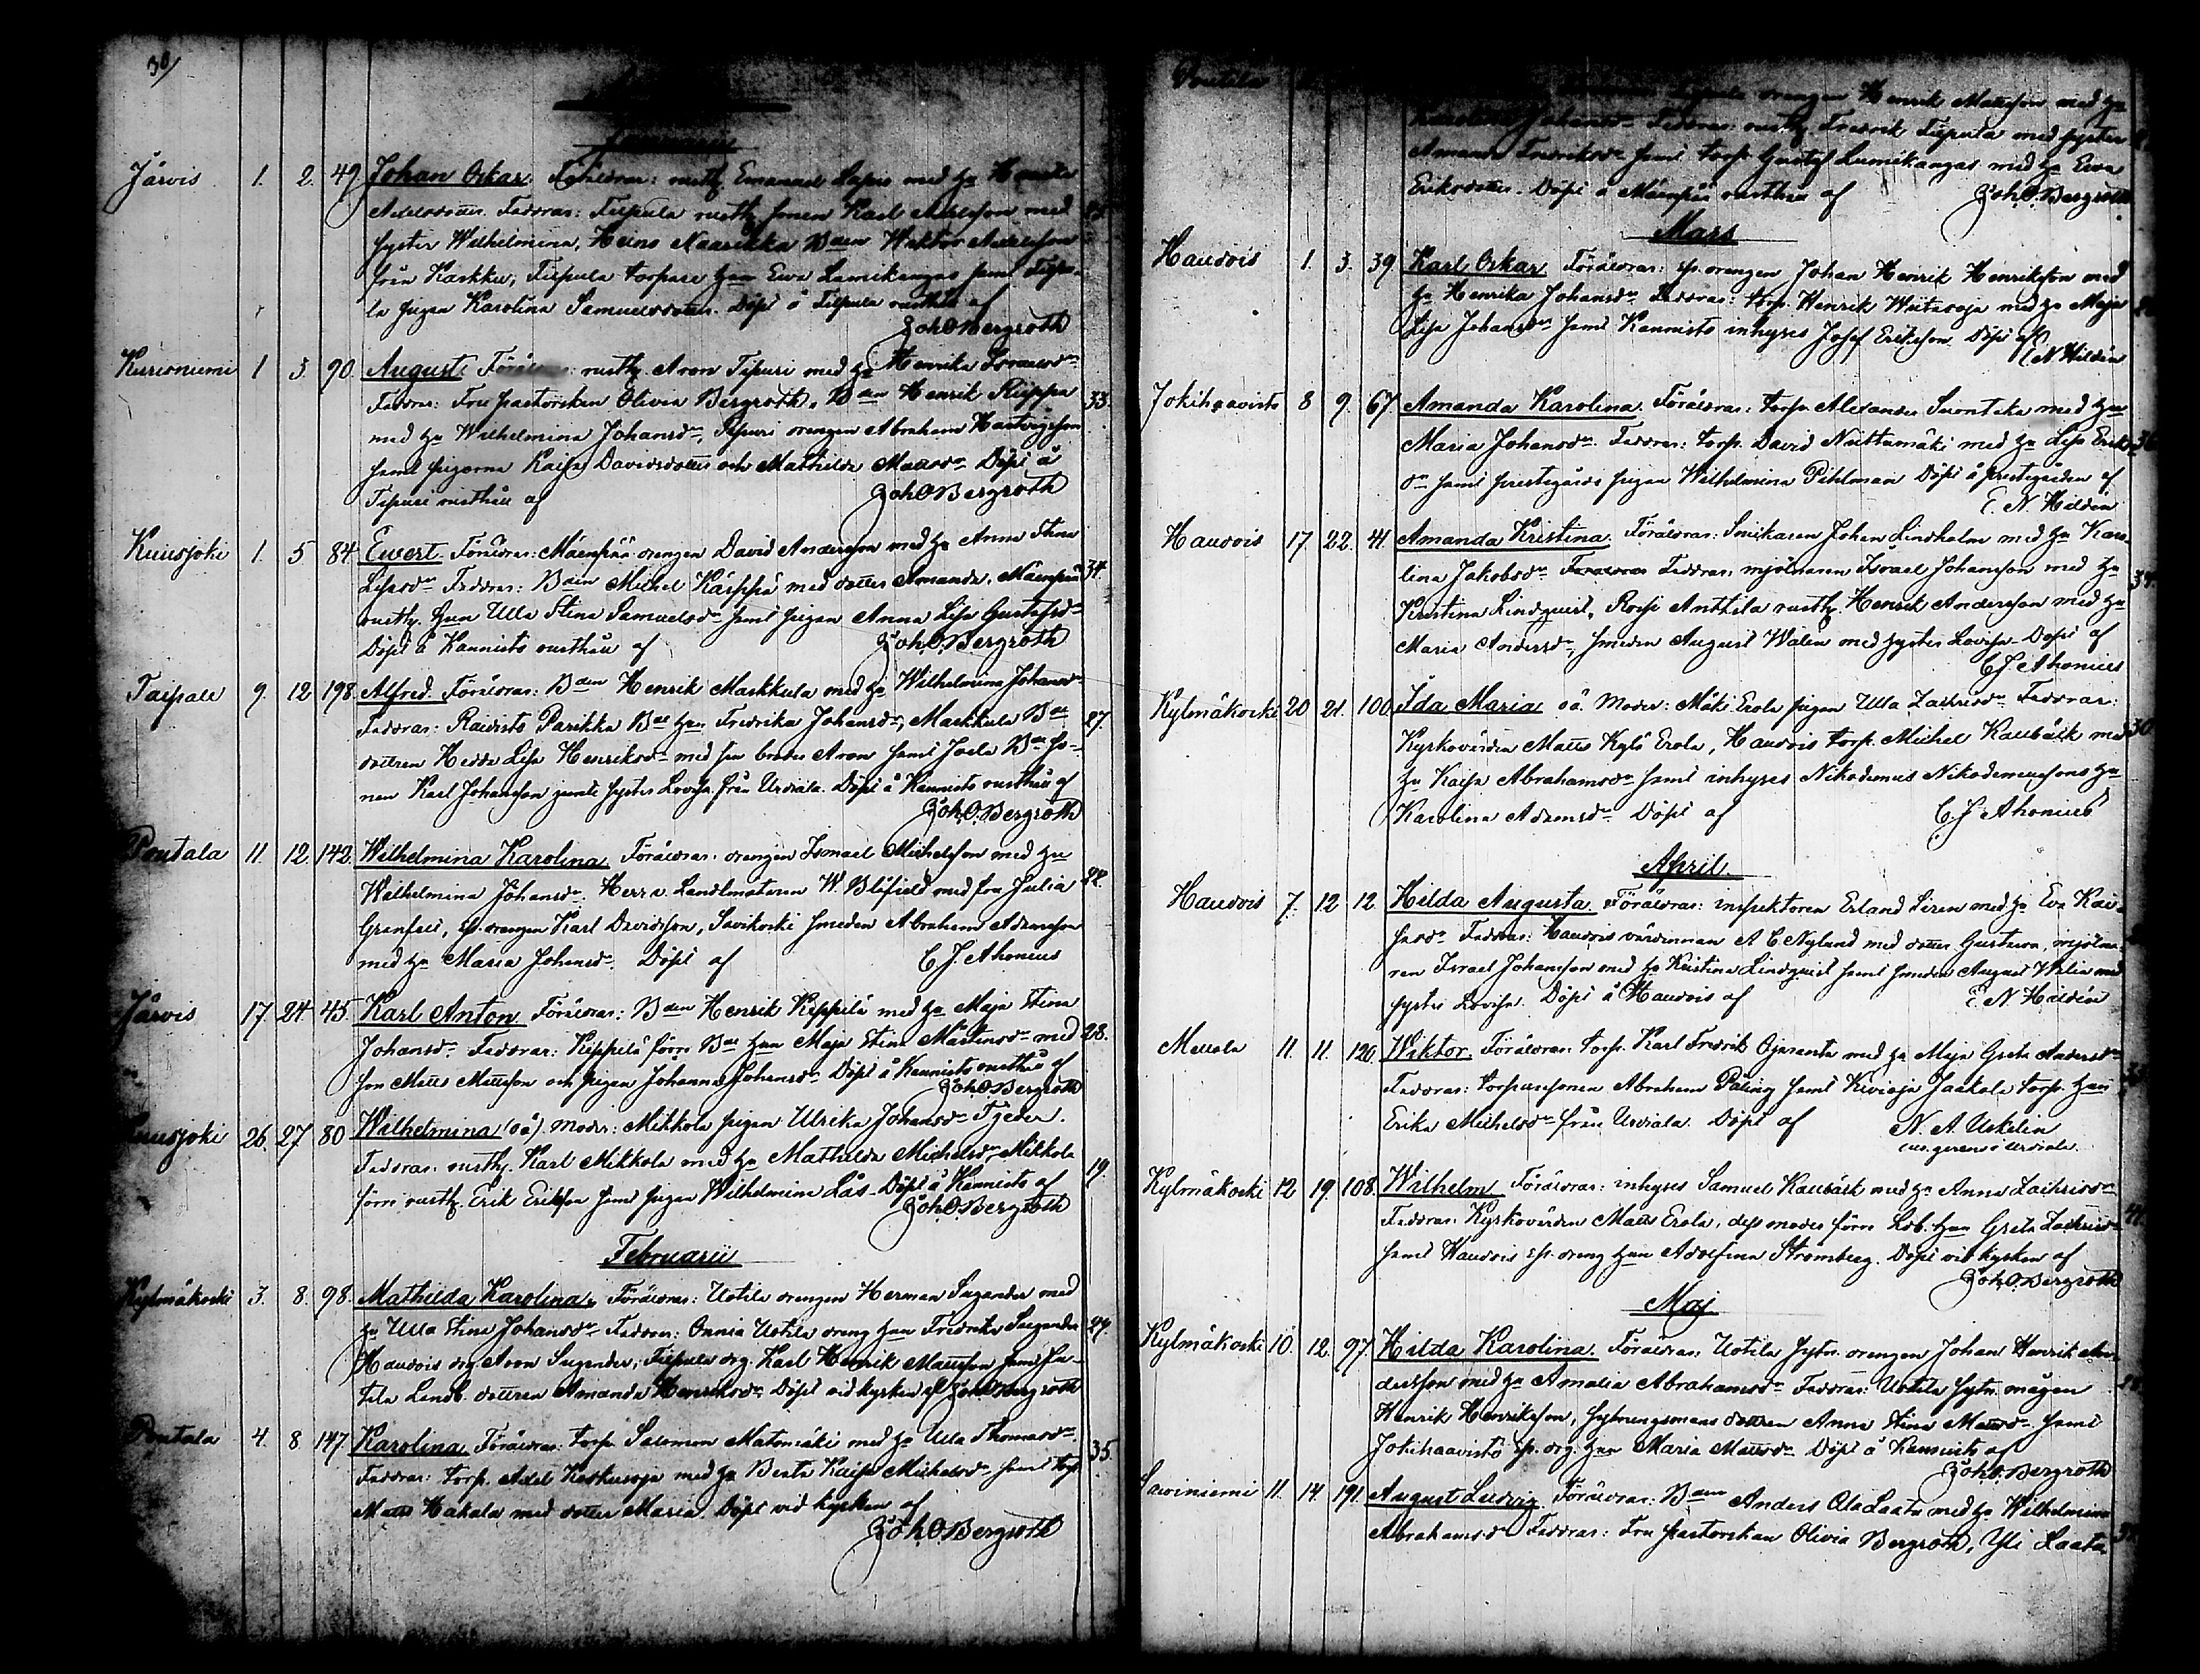 30/
Januarii
Järvis 1. 2. 49 Johan Oskar Föräldrar: rusth. Emanuel med hu
Adelsdotter. Faddrar: Tilpula rusth. sonen Karl Adelsson med
syster Wilhelmina, Heino Naarikka Bden Wiktor
från Karkku, Tilpula torpare hun Ewa Lamikangas samt Tilpu-
la pigan Karolina Samuelsdotter. Döpt å Tilpula rusthåll af
Joh.O.Bergroth
Kurisniemi 1 3. 90. August. rusth. Aron Tipuri med hu Henrika
Faddrar: Fru pastorskan Olivia Bergroth, Bden Henrik Riippa 33.
med hu Wilhelmina Johansdr, Tipuri drengen Abraham Hartvigsson
samt pigorna Kaisa Davidsdotter och Mathilda Mattsdr Döpt å
Tipuri rusthåll af Joh.O.Bergroth
Kuusjoki 1. 5 84. Ewert. Föräldrar: Mäenpää drengen David Andersson med hu Anna Stina
Faddrar: Bden Michel Kärppä med dotter Amanda, Mäenpää 34.
rusth. hun Ulla Stina Samuelsdr samt pigan Anna Lisa Gustafsdr
Döpt å Kannisto rusthåll af Joh.O.Bergroth
Taipale 9. 12 198. Alfred. Föräldrar: Bden Henrik Markkula med hu Wilhelmina Johansdr
Faddrar: Raudisto Parikka Bde hun Fredrika Johansdr, Markkula Bde 27.
dottren Hedda Lisa Henriksdr med sin broder Aron samt Joela Bde so-
nen Karl Johansson jemte syster Lovisa från Urdiala. Döpt å Kannisto rusthåll af
Joh.O.Bergroth
Pontala 11. 12. 142. Wilhelmina Karolina. Föräldrar: drengen Ismael Michelsson med hu
Wilhelmina Johansdr. Herr v. Landtmätaren W. Blåfield med fru Julia 22.
Granfelt, drengen Karl Davidsson, Savikoski smeden Abraham Adamsson
med hu Maria Johansdr. Döpt af C.J. Ahonius
Järvis 17. 24. 45. Karl Anton. Föräldrar: Bden Henrik Keppilä med hu Maja Stina
Johansdr. Faddrar: Keppilä förre Bde hun Maja Stina Mårtensdr med 28.
son Matts Mattsson och pigan Johanna Johansdr. Döpt å Kannisto rusthåll af
Joh.O.Bergroth
Kuusjoki 26. 27 80 Wilhelmina (oä). Moder: Mikkola pigan Ulrika Johansdr Tjeder.
Faddrar: rusth. Karl Mikkola med hu Mathilda Michelsdr, Mikkola 19.
förre rusth. Erik samt pigan Wilhelmina Lås. Döpt å Kannisto af
Joh.O.Bergroth
Februarii
Kylmäkoski 3. 8. 98. Mathilda Karolina. Föräldrar: Uotila drengen Herman Sugander med
hu Ulla Stina Johansdr Faddrar: Onnia Uotila dreng hun Fredrika Sugander 27.
Haudois drg Aron Sugander, Tilpula drg. Karl Henrik Mattsson samt
tila Landb. dottren Amanda Henriksdr. Döpt vid kyrkan af Joh.O.Bergroth
Pontala 4. 8 147. Karolina Föräldrar: torp. Salomon Matomäki med hu Ulla Thomasdr.
Faddrar: torp. Adel med hu Beata Kaisa Michelsdr samt torp. 35.
Matts Hakala med dotter Maria. Döpt vid kyrkan af
Joh.O.Bergroth
Pontala drengen Henrik Mattsson med hu
Karolina Johansdr Faddrar: rusth. Fredrik Tilpula med syster
Amanda Fredriksdr samt torp. Gustaf Lumikangas med hu Ewa
Eriksdotter. Döpt å Mäenpää rusthåll af Joh.O.Bergroth
Mars
Haudois 1. 3. 39. Karl Oskar Föräldrar: sp. drengen Johan Henrik Henriksson med
hu Henrika Johansdr Faddrar: torp. Henrik Wiitasoja med hu Maja
Lisa Johansdr samt Kannisto inhyses Josef Eriksson Döpt af
E N Hildén
Jokihaavisto 8 9. 67 Amanda Karolina. Föräldrar: torp. Alexander med hu
Maria Johansdr. Faddrar: torp. David Niittumäki med hu Lisa Eriks- 36
dr samt prestegårds pigan Wilhelmina Pihlman Döpt å prestgården af
E. N. Hildén
Haudois 17. 22. 41. Amanda Kristina. Föräldrar: Snickaren Johan Lindholm med hu Karo-
lina Jakobsdr Föräldrar Faddrar: mjölnaren Israel Johansson med hu 34.
Kristina Lindquist, Anttila rusth. Henrik Andersson med hu
Maria Andersdr, smeden August Walin med syster Lovisa Döpt af
C J Ahonius
Kylmäkoski 20 21. 100. Ida Maria oä Moder: Mäki Erola pigan Ulla Zachrisdr. Faddrar:
Kyrkovärden Matts Kylä Erola, Haudois torp. Michel Kaubäck med 30
hu Kaisa Abrahamsdr samt inhyses Nikodemus Nikodemussons hu
Karolina Adamsdr Döpt af C.J Ahonius
April
Haudois 7. 12 12. Hilda Augusta. Föräldrar: inspektoren Erland Siren med hu Eva Kai-
sasdr Faddrar: Haudois värdinnan A C Nylund med dotter Gustava, mjölna-
ren Israel Johansson med hu Kristina Lindquist samt smeden August Walin med
syster Lovisa. Döpt å Haudois af E N Hildén
Mettola 11. 11. 120. Wiktor. Föräldrar: torp. Karl Fredrik Ojaranta med hu Maja Greta Andersdr
Faddrar: torparesonen Abraham Påling samt Kivioja Jaakola torp. hun
Erika Michelsdr från Urdiala Döpt af N. A. Uskelin
Kylmäkoski 12 19. 108. Wilhelm Föräldrar: inhyses Samuel Kaubäck med hu Anna Zachrisdr
Faddrar: Kyrkovärden Matts Erola, dess moder förre Ldb. hun Greta Zachrisdr 44.
samt Haudois sp. dreng hun Adolfina Strömberg. Döpt vid kyrkan af
Joh.O.Bergroth
Maj
Kylmäkoski 10. 12. 97. Hilda Karolina. Föräldrar: Uotila sytn. drengen Johan Henrik An-
dersson med hu Amalia Abrahamsdr Faddrar: Uotila sytn. mågen
Henrik Henriksson, sytningsmans dottren Anna Stina Mattsdr samt
Jokihaavisto sp. drg. hun Maria Mattsdr Döpt å Kannisto af
Joh.O.Bergroth
Saviniemi 11. 14. 191. August Ludvig. Föräldrar: Bden Anders Ala Laatu med hu Wilhelmina
Abrahamsdr Faddrar: Fru pastorskan Olivia Bergroth, Yli Laatu